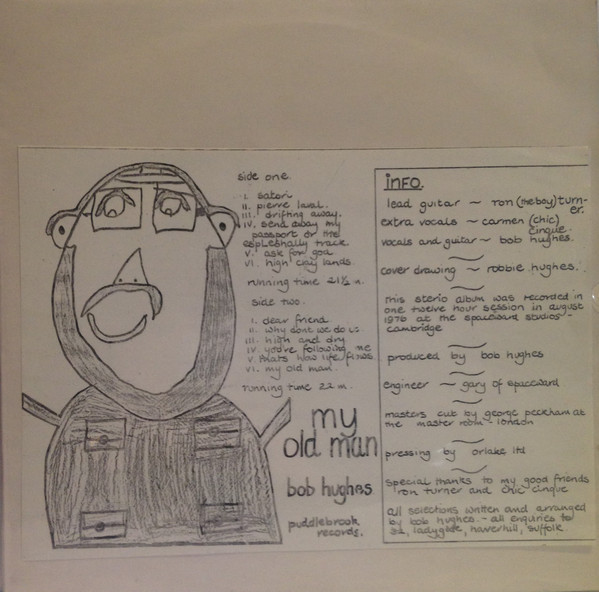 side one.
i. satori
ii. pierre laval.
iii. drifting away.
iv. send away my
passport or the
track.
v. ask for goa
vi. high clay lands.
running time 21½ m.
side two.
i. dear friend
ii. why dont we do it
iii. high and dry
iv. you're following me
v. thats how life flows.
vi. my old man.
running time 22 m.
my
old man
bob hughes
puddlebrook
records.
info.
lead guitar ~ ron (the boy) turn-
er.
extra vocals ~ carmen (chic)
cinque.
vocals and guitar ~ bob hughes.
cover drawing ~ robbie hughes.
this sterio album was recorded in
one twelve hour session in august
1976 at the spaceward studios -
cambridge
produced by bob hughes
engineer ~ gary of spaceward
masters cut by george peckham at
the master room - london
pressing by orlake ltd
special thanks to my good friends
ron turner and chic cinque
all selections written and arranged
by bob hughes. - all enquiries to
ladygate, haverhill, suffolk.